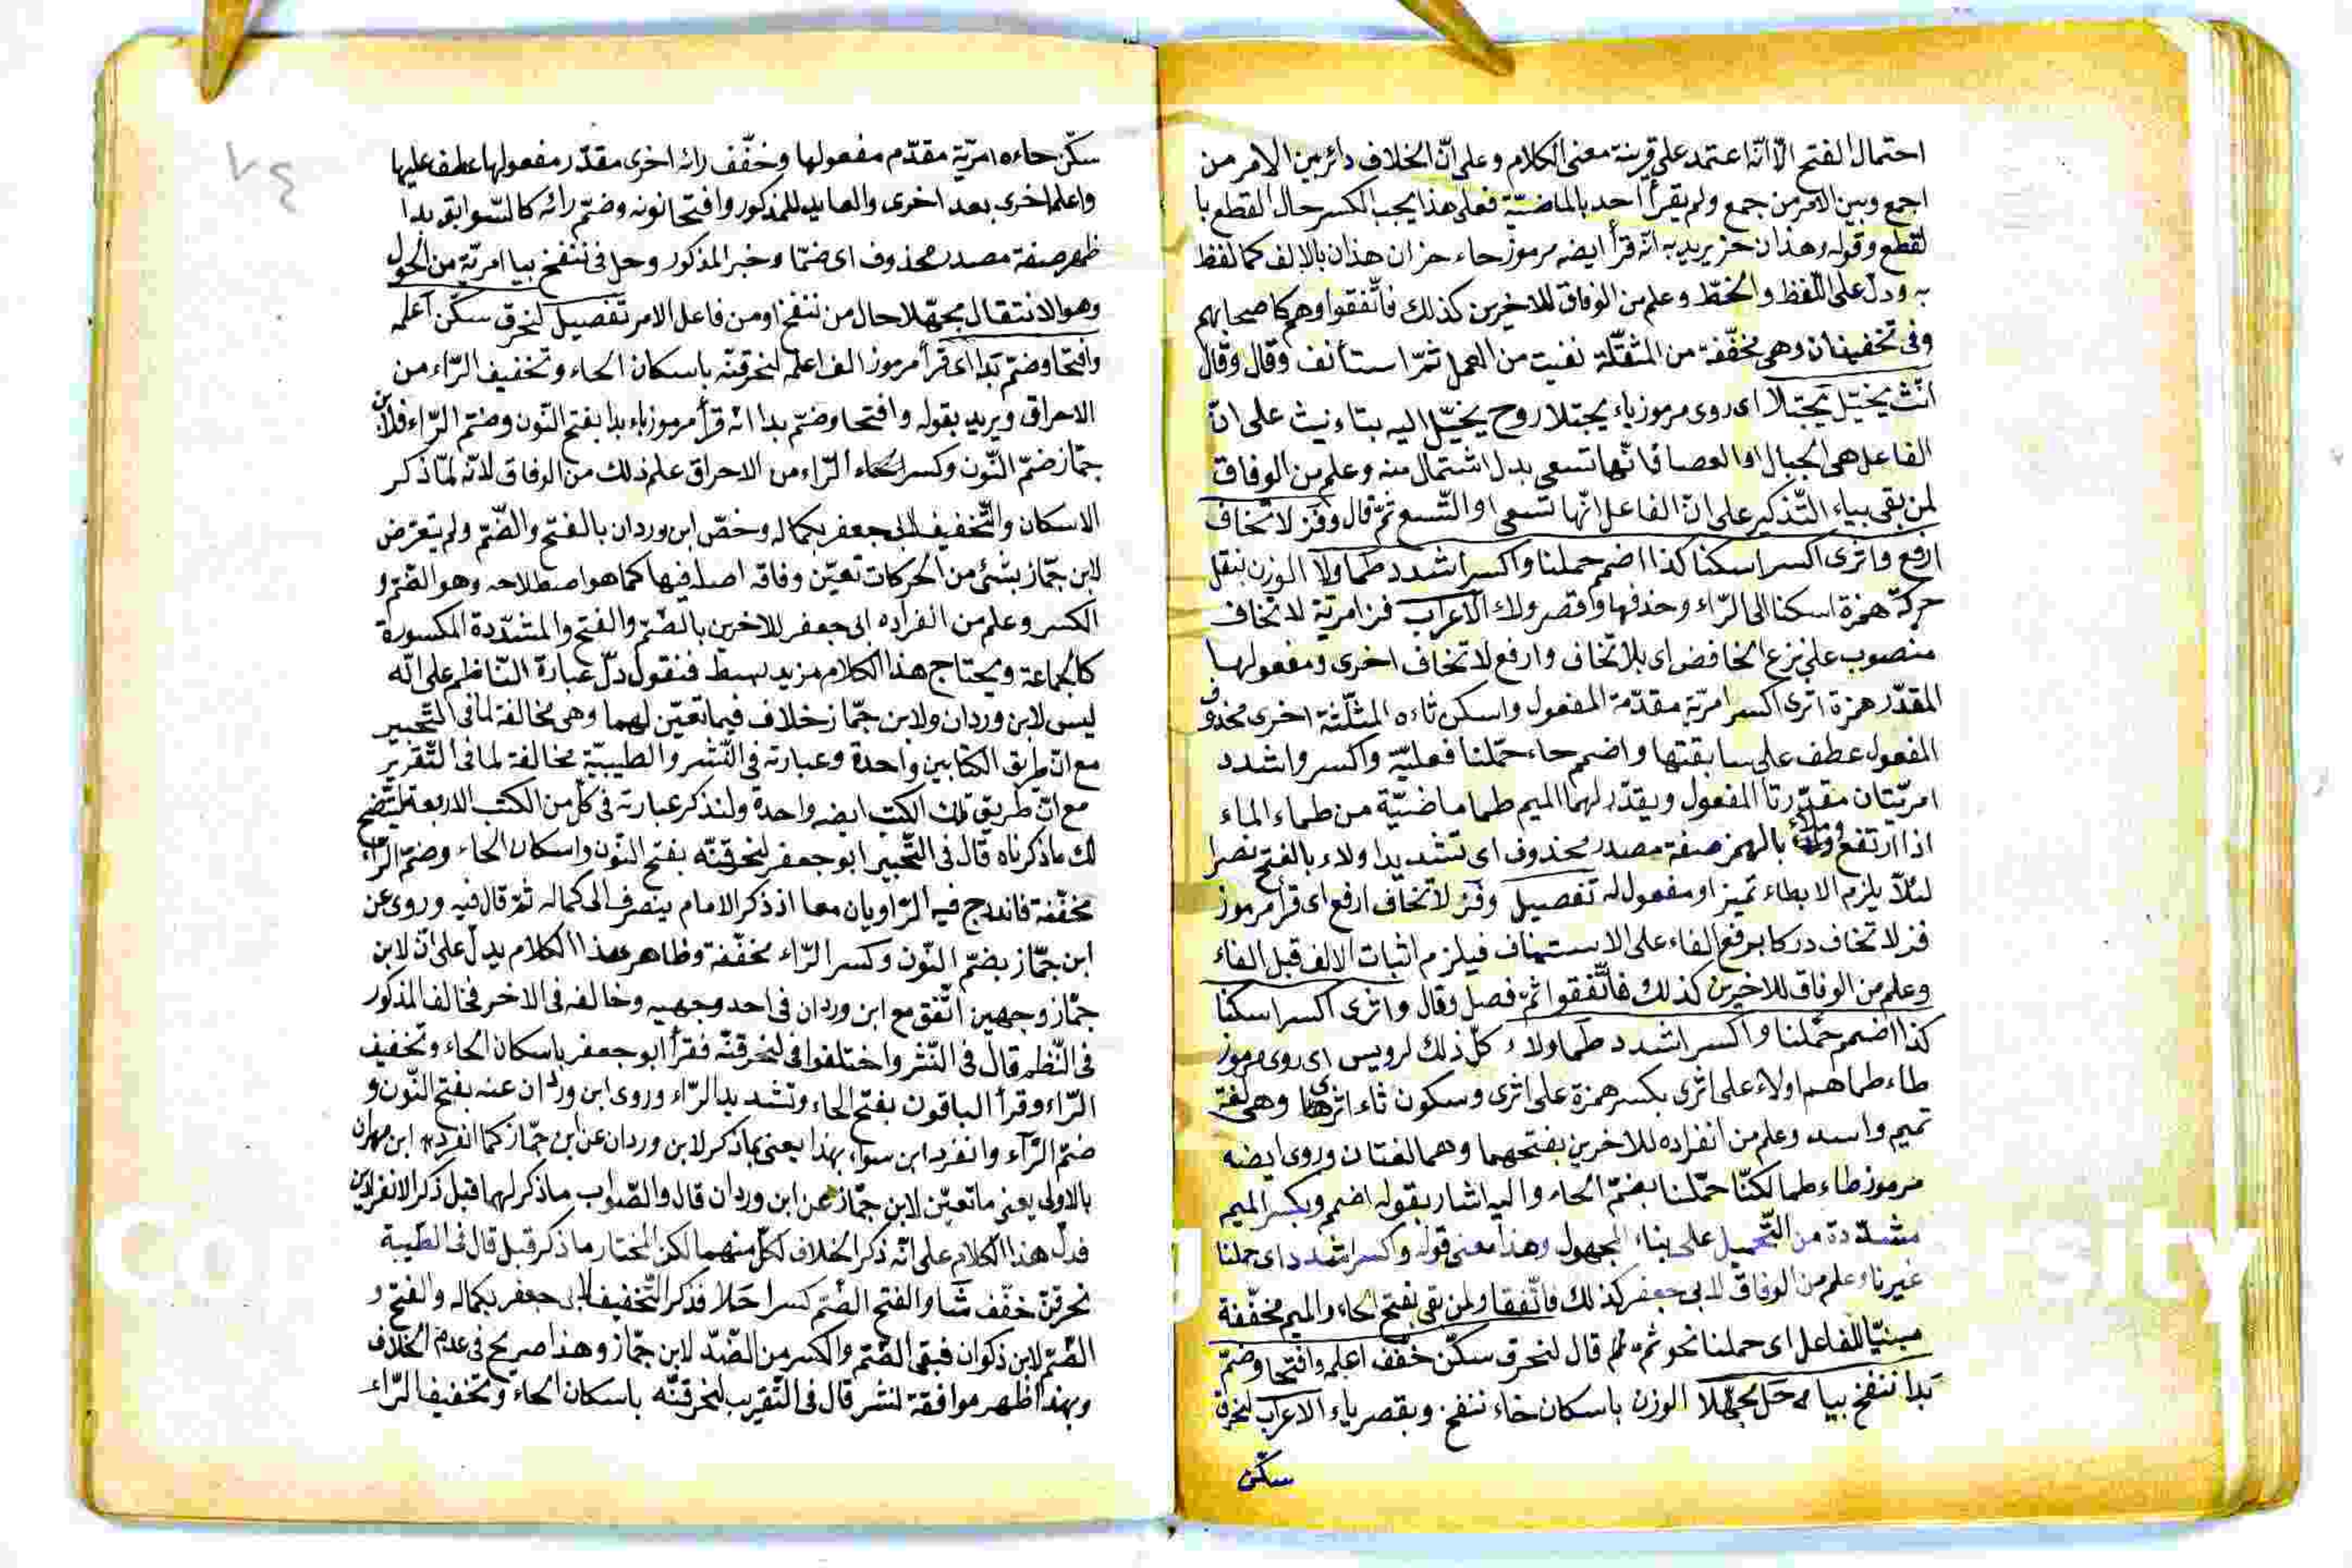 احتمال الفتح الّا انّه اعتمد على قرينة معنى الكلام وعلى انّ الخلاف دائر بين الامر من
اجمع وبين الامر من جمع ولم يقرأ احد بالماضيّة فعلى هذا يجب الكسر حال القطع با
لقطع وقوله وهذان حز يريد به انّه قرأ ايضه مرموز حاء حز ان هذان بالالف كما لفظ
به ودلّ على اللّفظ والخطّ وعلم من الوفاق للاخرين كذلك فاتّفقوا وهم كاصحابهم
وفى تخفيف ان وهى مخفّفة من المثقّلة نفيت من العمل ثمّ استأنف وقال وقال
انّث يخيّل يجتلا اى روى مرموز ياء يجتلا روح يخيّل اليه بتاء نيث على انّ
الفاعل هى الجبال او العصا فانّها تسعى بدل اشتمال منه وعلم من الوفاق
لمن بقى بياء التّذكير على انّ الفاعل انّها تسعى او السّعى ثمّ قال وفز لا تخاف
ارفع واثرى اكسر اسكنا كذا اضمم حملنا واكسر اشدد طما ولا الوزن بنقل
حركة همزة اسكنا الى الرّاء وحذفها وقصر ولاء الاعراب فز امريّة لا تخاف
منصوب على نزع الخافض اى بلا تخاف وارفع لا تخاف اخرى ومفعولها
المقدّر همزة اثرى اكسر امريّة مقدّمة المفعول واسكن ثاءه المثلّثة اخرى محذوف
المفعول عطف على سابقتها واضمم حاء حمّلنا فعليّة واكسر واشدد
امريّتان مقدّرتا المفعول ويقدّر لهما الميم طما ماضيّة من طماء الماء
اذا ارتفع وملاء بالهمز صفة مصدر محذوف اى تشديدا ولاء بالفتح نصرا
لئلّا يلزم الابطاء تميز او مفعول له تفصيل وفز لا تخاف ارفع اى قرأ مرموز
فز لا تخاف دركا برفع الفاء على الاستيناف فيلزم اثبات الالف قبل الفاء
وعلم من الوفاق للاخرين كذلك فاتّفقوا ثمّ فصل وقال واثرى اكسر اسكنا
كذا اضمم حمّلنا واكسر اشدد طما ولاء كلّ ذلك لرويس اى روى مرموز
طاء طما هم اولاء على اثرى بكسر همزة على اثرى وسكون ثاء اثرى وهى لغة
تميم واسد وعلم من انفراده للاخرين بفتحهما وهما لغتان وروى ايضه
مرموز طاء طما لكنّا حمّلنا بضمّ الحاء واليه اشار بقوله اضمم وبكسر الميم
مشدّدة من التّحميل على بناء المجهول وهذا معنى قوله واكسر اشدد اى حملنا
غيرنا وعلم من الوفاق لابى جعفر كذلك فاتّفقا ولمن بقى بفتح الحاء والميم مخفّفة
مبنيّا للفاعل اى حملنا نحو ثمّ قال لنحرق سكّن خفّف اعلمه وافتحا وضمّ
بدا ننفخ بيا حل مجهّلا الوزن باسكان خاء ننفخ وبقصر ياء الاعراب لنحرق
سكّن
سكّن حاءه امريّة مقدّم مفعولها وخفّف رائه اخرى مقدّر مفعولها عطف عليها
واعلما اخرى بعد اخرى والعايد للمذكور وافتحا نونه وضمّ رائه كالسّوابق بدا
ظهر صفة مصدر محذوف اى ضمّا وخبر المذكور وحل فى ننفخ بيا امريّة من الحول
وهو الانتقال مجهّلا حال من ننفخ او من فاعل الامر تفصيل لنحرق سكّن اعلمه
وافتحا وضمّ بدا اى قرأ مرموز الف اعلمه لنحرقنّه باسكان الحاء وتخفيف الرّاء من
الاحراق ويريد بقوله وافتحا وضمّ بدا انه قرأ مرموز باء بدا بفتح النّون وضمّ الرّاء فلابن
جمّاز ضمّ النّون وكسر الرّاء من الاحراق علم ذلك من الوفاق لانّه لمّا ذكر
الاسكان والتّخفيف لابى جعفر بكماله وخصّ ابن وردان بالفتح والضّمّ ولم يتعرّض
لابن جمّاز بشئ من الحركات تعيّن وفاقه اصله فيها كما هو اصطلاحه وهو الضّمّ و
الكسر وعلم من انفراده ابى جعفر للاخرين بالضّمّ والفتح والمشدّدة المكسورة
كالجماعة ويحتاج هذا الكلام مزيد بسط فنقول دلّ عبارة النّاظم على انّه
ليس لابن وردان ولابن جمّاز خلاف فيما تعيّن لهما وهى مخالفة لما فى التّحبير
مع انّ طريق الكتابين واحدة وعبارته فى النّشر والطيبيّة مخالفة لما فى التّقريب
مع انّ طريق تلك الكتب ايضه واحدة ولنذكر عبارته فى كلّ من الكتب الاربعة ليتّضح
لك ما ذكرناه قال فى التّحبير ابو جعفر لنحرقنّه بفتح النّون واسكان الحاء وضمّ الرّاء
مخفّفة فاندرج فيه الرّاويان معا اذ ذكر الامام ينصرف الى كماله ثمّ قال فيه وروى عن
ابن جمّاز بضمّ النّون وكسر الرّاء مخفّفة وظاهر هذا الكلام يدلّ على انّ لابن
جمّاز وجهين اتّفق مع ابن وردان فى احد وجهيه وخالفه فى الاخر فخالف المذكور
فى النّظم قال فى النّشر واختلفوا فى لنحرقنّه فقرأ ابو جعفر باسكان الحاء وتخفيف
الرّاء وقرأ الباقون بفتح الحاء وتشديد الرّاء وروى ابن وردان عنه بفتح النّون و
ضمّ الرّاء وانفرد ابن سوار بهذا يعنى ما ذكر لابن وردان عن ابن جمّاز كما انفرد ابن مهران
بالاولى يعنى ما تعيّن لابن جمّاز عن ابن وردان قال والصّواب ما ذكر لهما قبل ذكر الانفرادين
فدلّ هذا الكلام على انّه ذكر الخلاف لكلّ منهما لكن المختار ما ذكر قبل قال فى الطّيبة
نحرقنّ خفّف شا والفتح الضّم كسرا حلا فذكر التّخفيف لابى جعفر بكماله والفتح و
الضّمّ لابن ذكوان فبقى الضّمّ والكسر من الضّدّ لابن جمّاز وهذا صريح فى عدم الخلاف
وبهذا ظهر موافقة لنشر قال فى التّقريب لنحرقنّه باسكان الحاء وتخفيف الرّاء